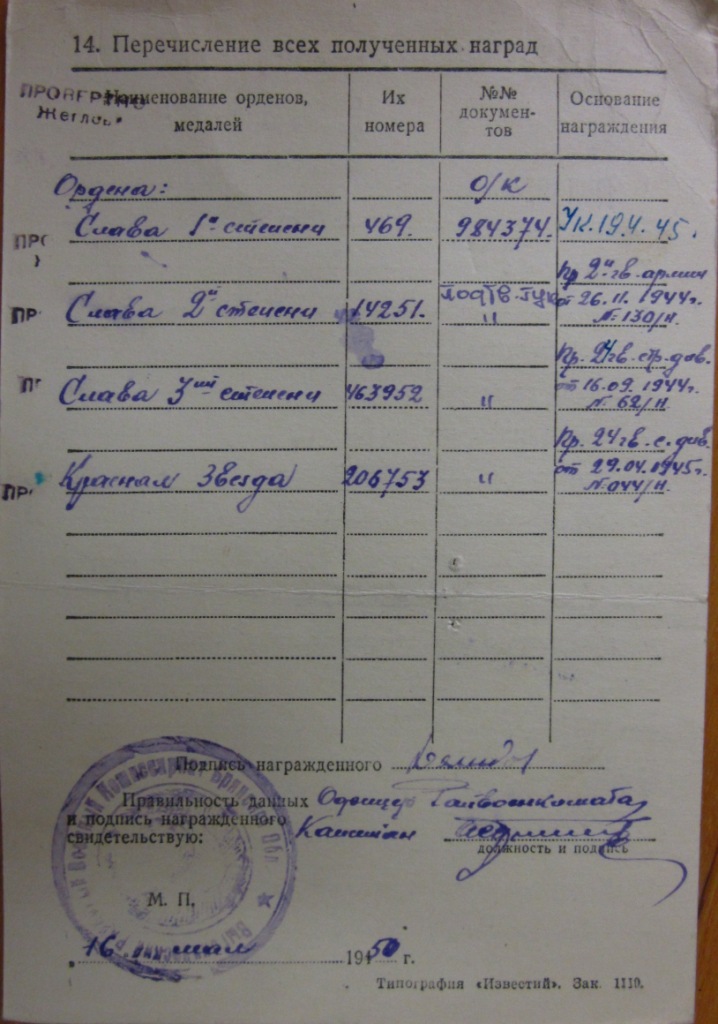 14. Перечисление всех полученных наград
ПРОВЕРЕНО
Жеглов
Наименование орденов, медалей
Их номера
№№ докумен-тов
Основание награждения
Ордена: о/к
Слава 1й степени 469. 984374. Ук. 19.4.45.
Пр. 2й гв. армии
Слава 2й степени 14251. подтв. гук от 26.11.1944г.
" № 130/н.
Пр. 24 гв. стр. див.
Слава 3ей степени 463952 " от 16.09.1944г.
№ 62/н.
Пр. 24 гв. с. див.
Красная Звезда 206753 " от 29.04.1945г.
№ 044/н.
ПРО
ПР
ПР
ПР
Подпись награжденного
Правильность данных Офицер Райвоенкомата
и подпись награжденного
свидетельствую: Капитан
должность и подпись
М. П.
16 мая 1950 г.
Типография «Известий». Зак. 1110.